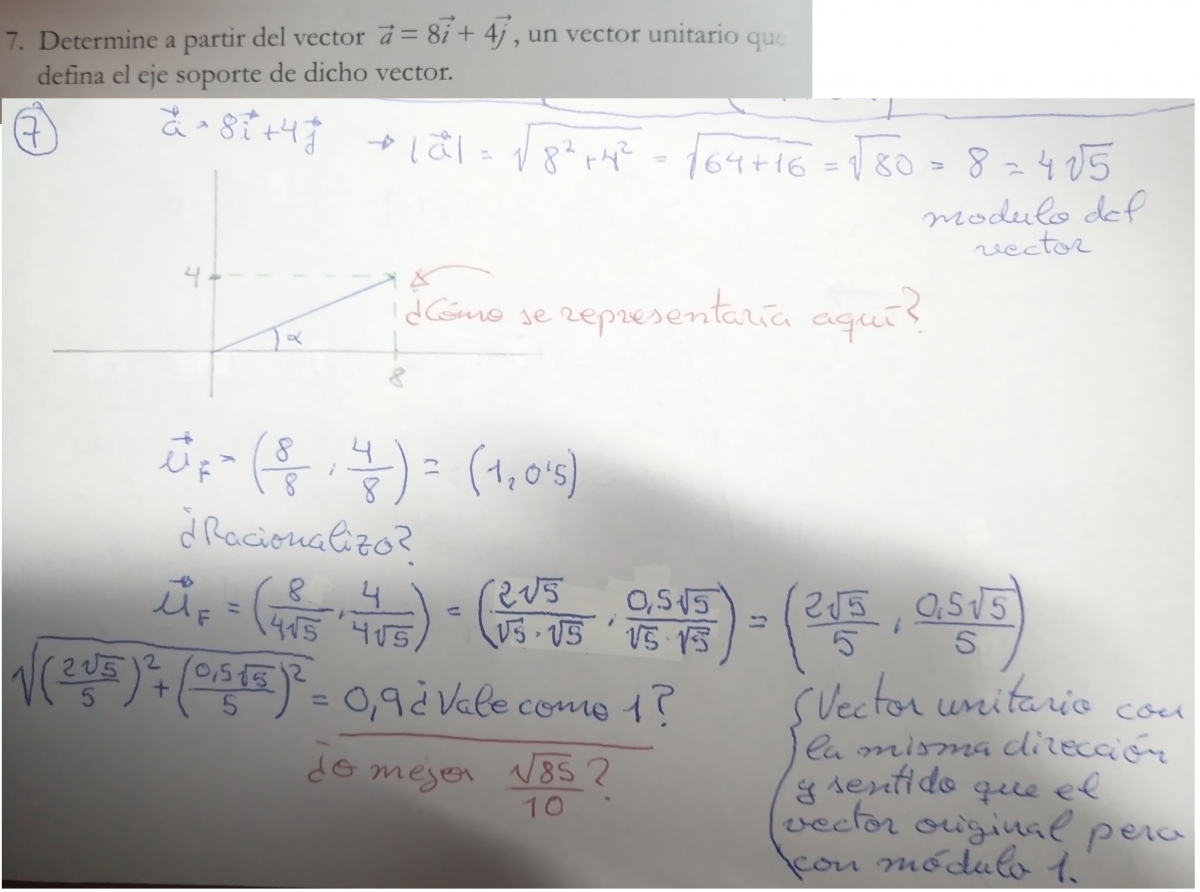 7. Determine a partir del vector a⃗ = 8i⃗ + 4j⃗, un vector unitario que
defina el eje soporte de dicho vector.
⑦ a⃗ = 8i⃗ + 4j⃗ → |a⃗| = √(8² + 4²) = √(64+16) = √80 = 8 = 4√5
modulo del
vector
4
¿Cómo se representaría aquí?
α
8
u⃗_F = (8/8, 4/8) = (1, 0'5)
¿Racionalizo?
u⃗_F = (8/4√5, 4/4√5) = (2√5/√5·√5, 0,5√5/√5·√5) = (2√5/5, 0,5√5/5)
√((2√5/5)² + (0,5√5/5)²) = 0,9 ¿Vale como 1?
¿o mejor √85/10?
Vector unitario con
la misma dirección
y sentido que el
vector original pero
con módulo 1.